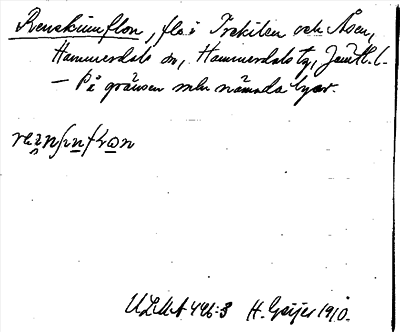 Renskinnflon, flo i Trekilen och Åsen,
Hammerdals sn, Hammerdals tg, Jämtl. l.
— På gränsen mln nämnda byar.
ULMA 446:3 H. Geijer 1910.